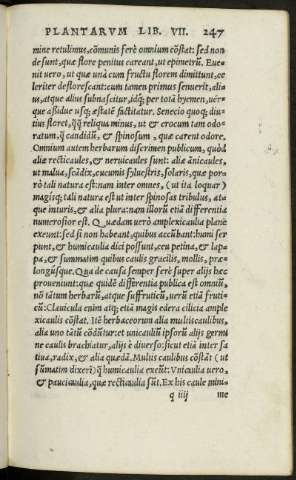 PLANTARVM LIB. VII. 247
mine retulimus, cõmunis ferè omnium cõstat: sed non
desunt, quæ flore penitus careant, ut epimetrũ. Eue-
nit uero, ut quæ unà cum fructu florem dimittunt, ce-
leriter deflorescant: cum tamen primus senuerit, ali-
us, atque alius subnascitur, idq; per totã hyemen, uér-
que aßidue usq; æstatẽ factitatur. Senecio quoq; diu-
tius floret, q̃q̃ reliqua minus, ut & crocum tam odo-
ratum, q̃ candidũ, & spinosum, quæ carent odore.
Omnium autem herbarum discrimen publicum, quòd
aliæ recticaules, & neruicaules sunt: aliæ ãnicaules,
ut malua, scãdix, cucumis syluestris, solaris, quæ por-
rò tali natura est: nam inter omnes, (ut ita loquar)
magisq; tali natura est ut inter spinosas tribulus, ata-
que inturis, & alia plura: nam illorũ etiã differentia
numerosior est. Quædam uerò amplexicaulia planè
exeunt: sed si non habeant, quibus accũbant: humi ser
punt, & humicaulia dici possunt, ceu petina, & lap-
pa, & summatim quibus caulis gracilis, mollis, præ-
longúsque. Qua de causa semper ferè super alijs hec
proueniunt: quæ quidẽ differẽtia publica est omniũ,
nõ tãtum herbarũ, atque suffruticũ, uerũ etiã fruti-
cũ: Clauicula enim atq; etiã magis edera cilicia ample
xicaulis cõstat. Itẽ herbaceorum alia multis caulibus,
alia uno tãtũ cõdũtur: et unicauliũ ipsorũ alijs germi
ne caulis brachiatur, alijs è diuerso: sicut etiã inter sa
tiua, radix, & alia quædã. Multis caulibus cõstãt (ut
sũmatim dixerĩ) q̃ humicaulia exeũt: Vnicaulia uerò,
& paucicaulia, quæ recticaulia sũt. Ex his caule mini-
q iiij me